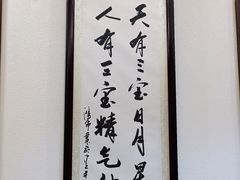 天有三宝日月星
人有三宝精气